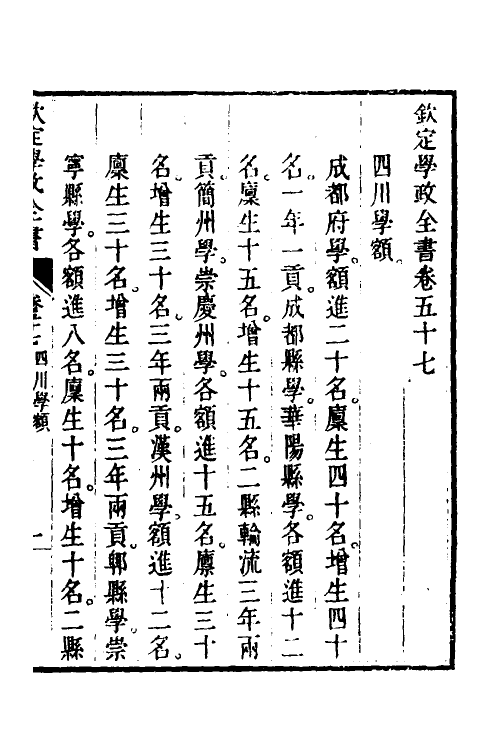 欽定學政全書卷五十七
四川學額
成都府學。額進二十名。廩生四十名。增生四十
名。一年一貢。成都縣學。華陽縣學。各額進十二
名。廩生十五名。增生十五名。二縣輪流三年兩
貢。簡州學。崇慶州學。各額進十五名。廩生三十
名。增生三十名。三年兩貢。漢州學。額進十二名。
廩生三十名。增生三十名。三年兩貢。郫縣學。崇
寧縣學。各額進八名。廩生十名。增生十名。二縣
欽定學政全書 卷五十七 四川學額 一